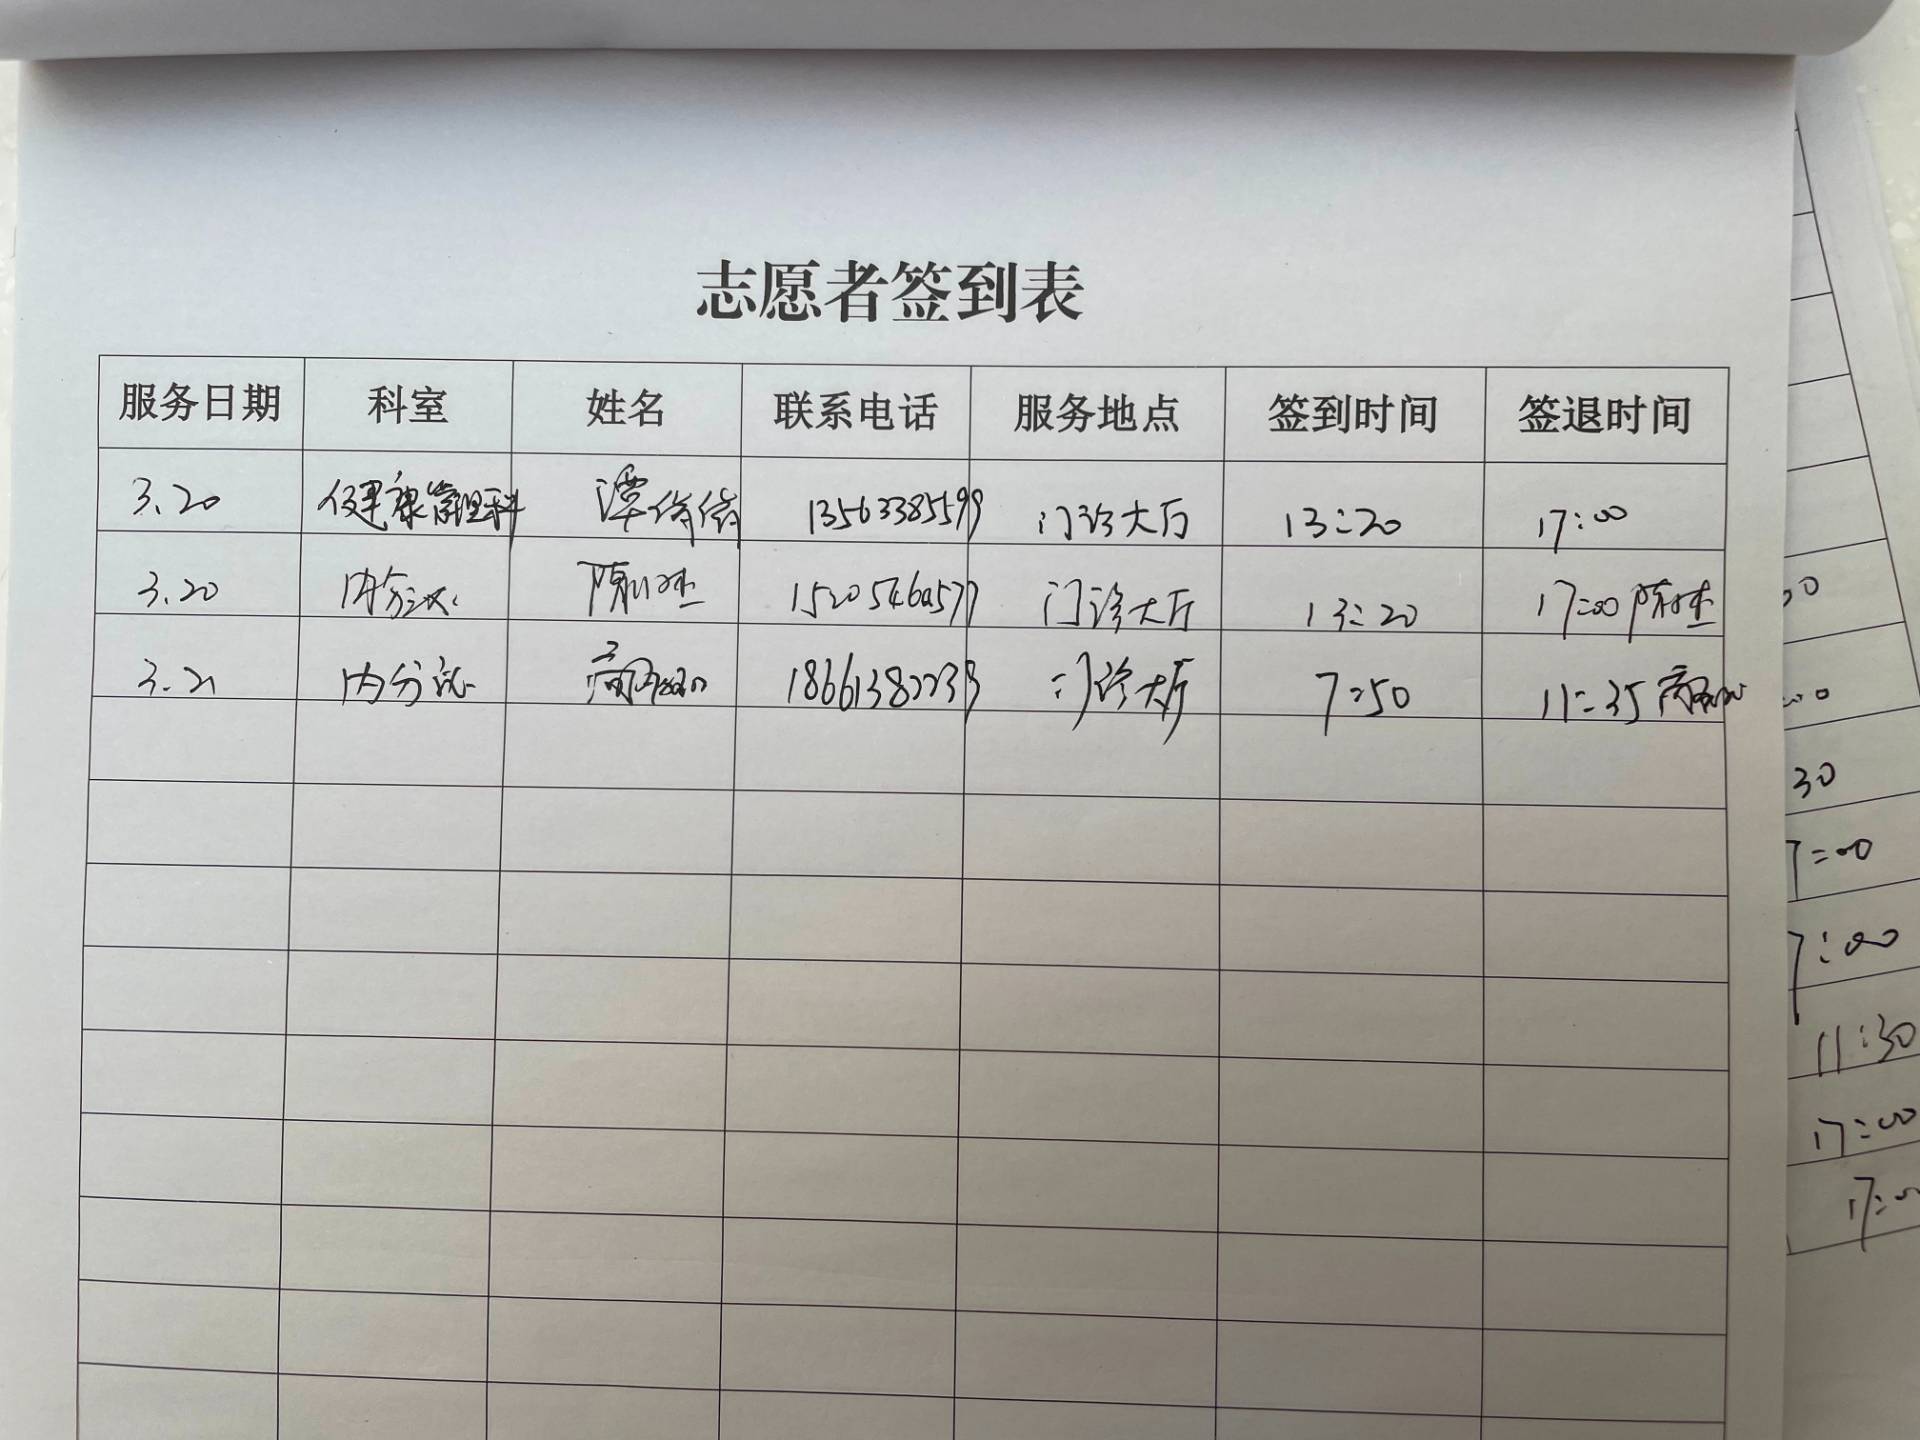 志愿者签到表
服务日期 科室 姓名 联系电话 服务地点 签到时间 签退时间
3.20 健康管理科 谭 13563385599 门诊大厅 13:20 17:00
3.20 内分泌 陈 门诊大厅 13:20 17:00 陈
3.21 内分泌 18661382239 门诊大厅 7:50 11:35
30
7:00
7:00
11:30
17:00